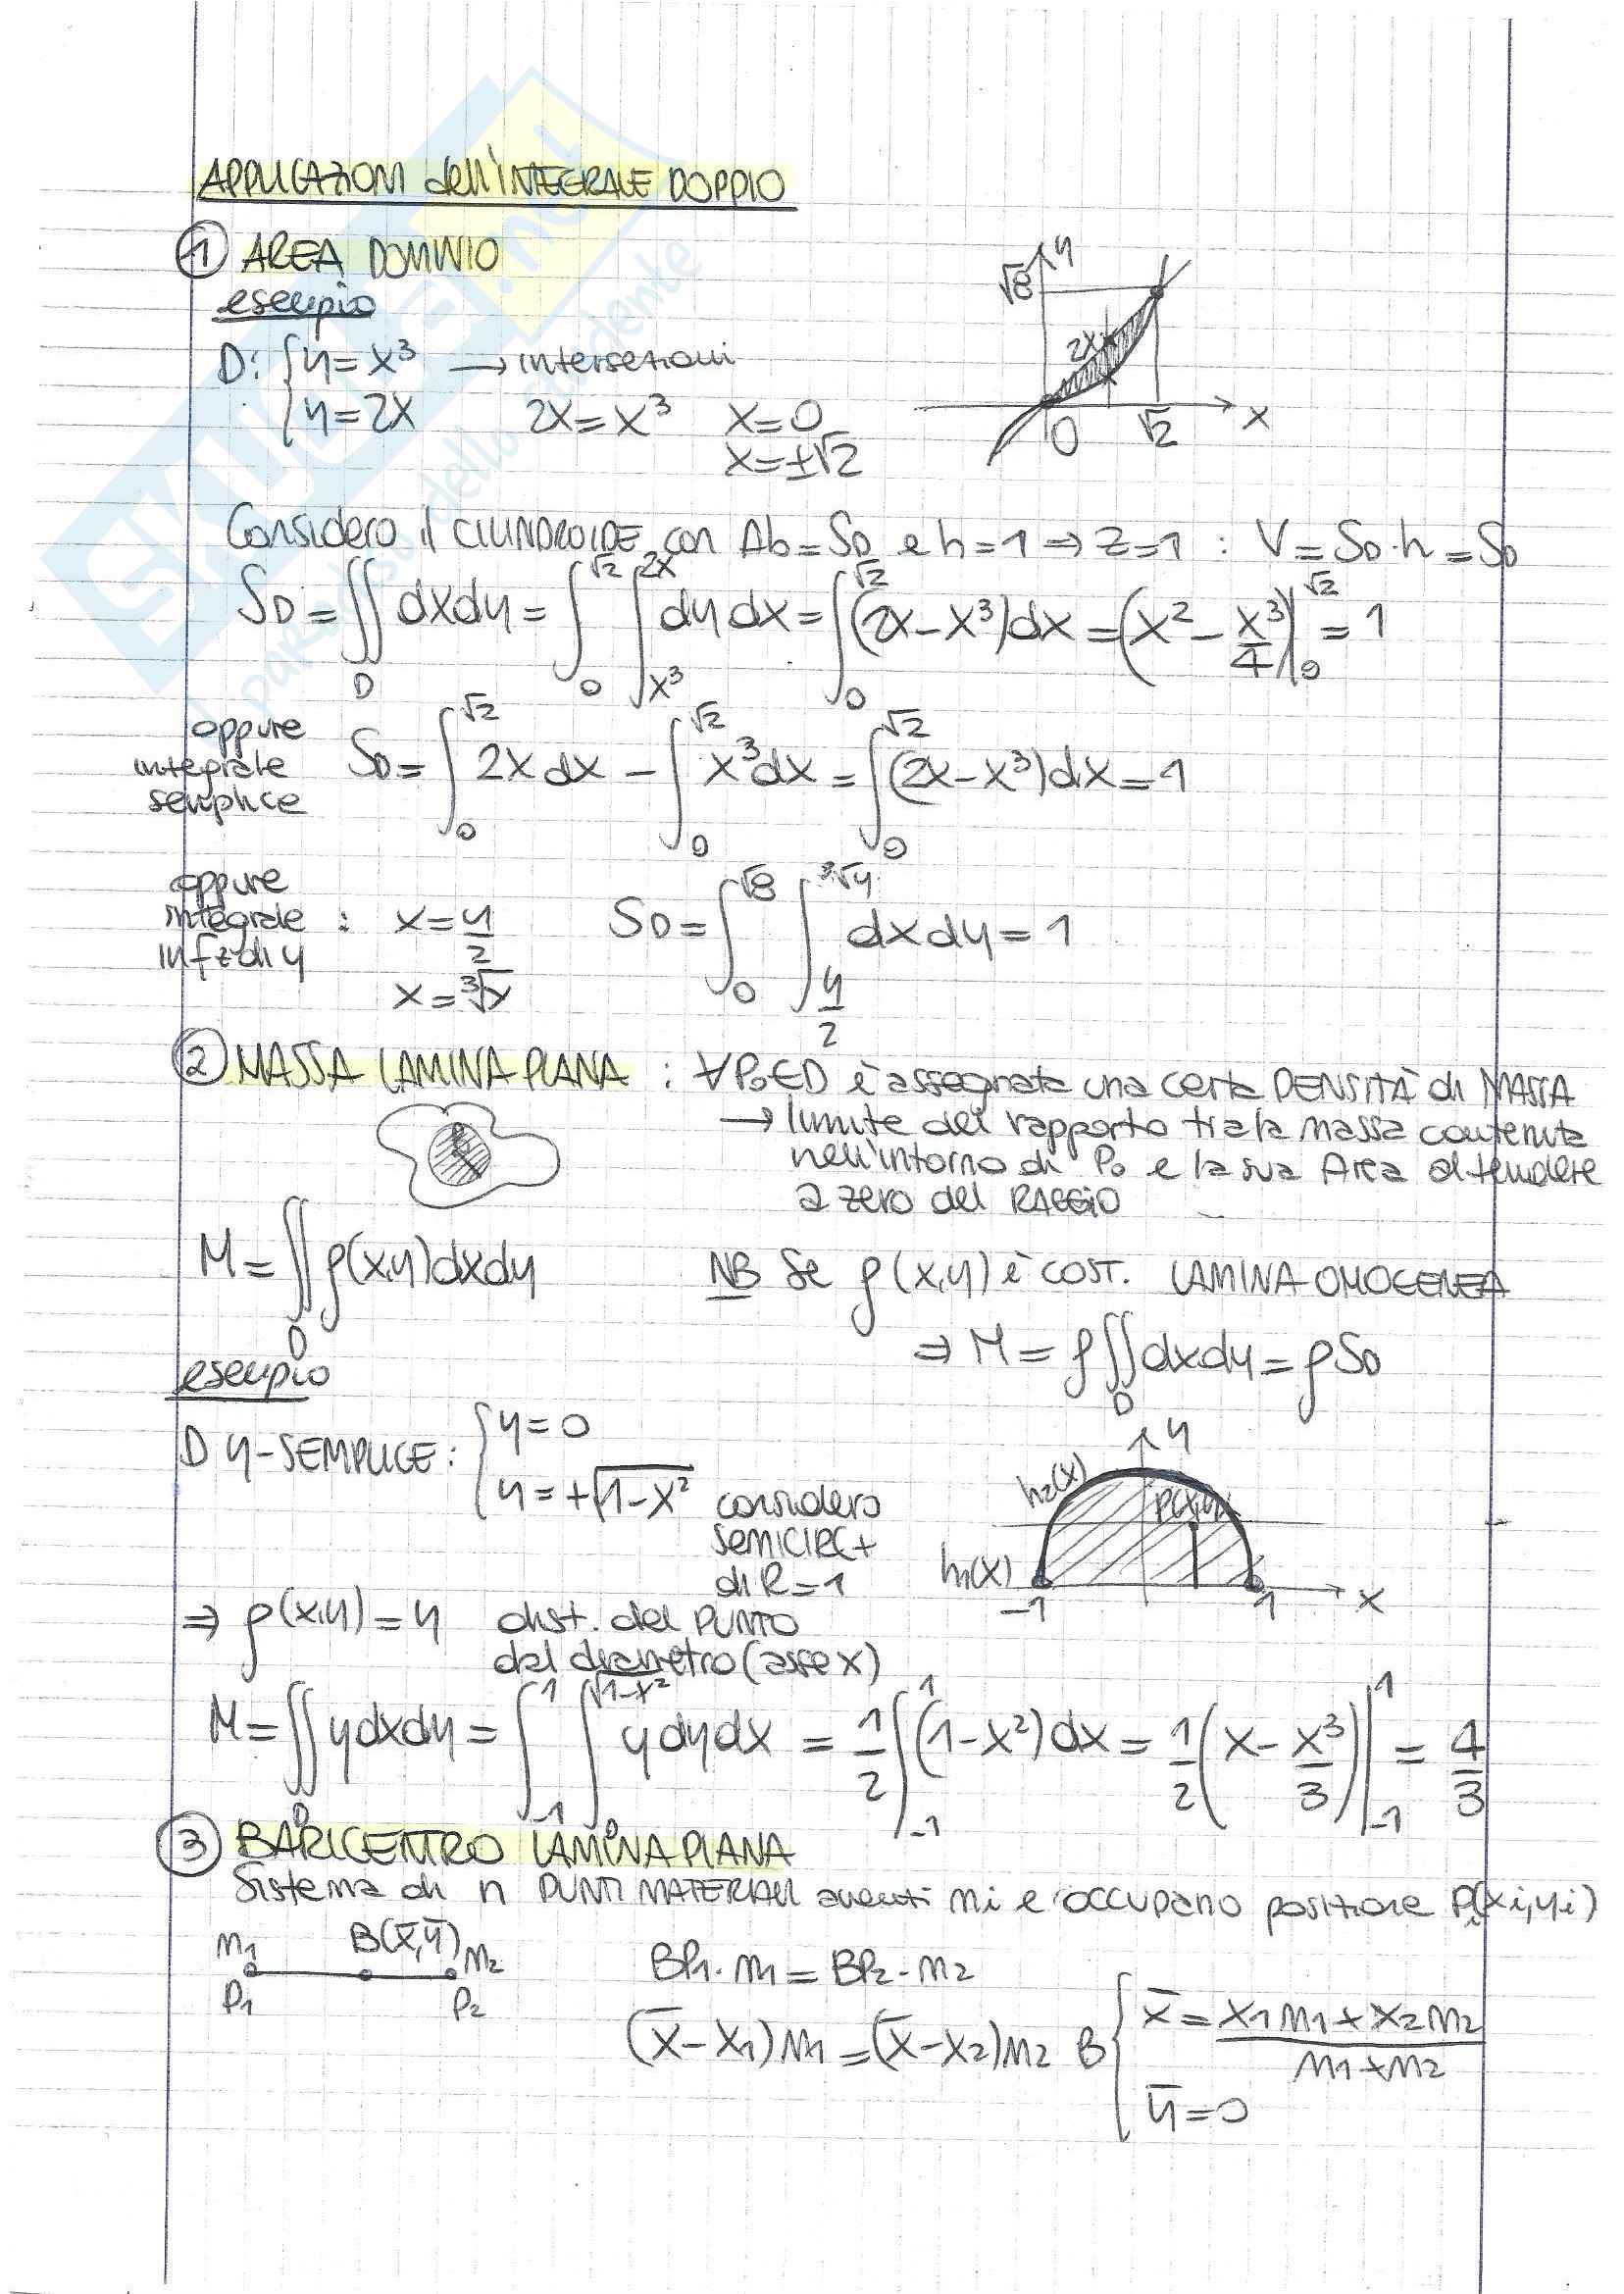 APPLICAZIONI dell'INTEGRALE DOPPIO
① AREA DOMINIO
esempio
D: { y = x³ → intersezioni
y = 2x 2x = x³ x = 0
x = ±√2
y √8 2x 0 √2 x
Considero il CILINDROIDE con Ab = S_D e h = 1 ⇒ z = 1 : V = S_D · h = S_D
S_D = ∬_D dxdy = ∫_0^√2 ∫_{x³}^{2x} dy dx = ∫_0^√2 (2x - x³)dx = (x² - x³/4)|_0^√2 = 1
oppure integrale semplice S_D = ∫_0^√2 2x dx - ∫_0^√2 x³dx = ∫_0^√2 (2x - x³)dx = 1
oppure integrale in fz di y : x = y/2 S_D = ∫_0^√8 ∫_{y/2}^{³√y} dx dy = 1
x = ³√x
② MASSA LAMINA PIANA : ∀P₀∈D è assegnata una certa DENSITÀ di MASSA
→ limite del rapporto tra la massa contenuta
nell'intorno di P₀ e la sua Area al tendere
a zero del RAGGIO
M = ∬_D ρ(x,y)dxdy NB Se ρ(x,y) è COST. LAMINA OMOGENEA
⇒ M = ρ∬_D dxdy = ρS_D
esempio
D y-SEMPLICE: { y = 0
y = +√1-x² considero
SEMICIRC +
di R = 1
y h₂(x) P(x,y) h₁(x) -1 1 x
⇒ ρ(x,y) = y dist. del PUNTO
dal diametro (asse x)
M = ∬_D y dxdy = ∫_{-1}^1 ∫_0^{√1-x²} y dy dx = 1/2 ∫_{-1}^1 (1-x²)dx = 1/2 (x - x³/3)|_{-1}^1 = 4/3
③ BARICENTRO LAMINA PIANA
Sistema di n PUNTI MATERIALI aventi mi e occupano posizione Pi(xi,yi)
m₁ B(x̄,ȳ) m₂
P₁ P₂
BP₁ · m₁ = BP₂ · m₂
(x̄ - x₁)m₁ = (x̄ - x₂)m₂ B { x̄ = x₁m₁ + x₂m₂ / m₁ + m₂
ȳ = 0
SKUOLA.net